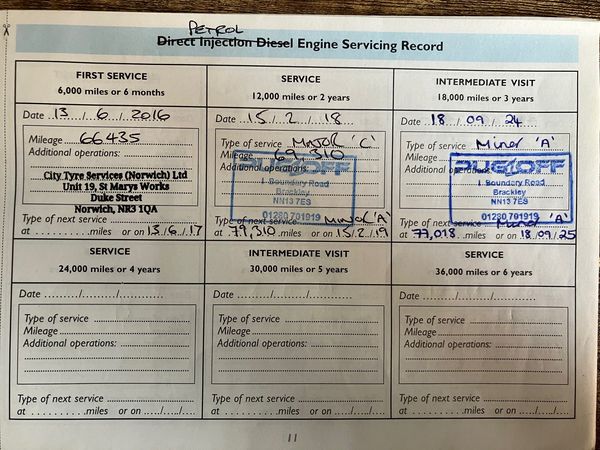 PETROL
Direct Injection Diesel Engine Servicing Record
FIRST SERVICE
6,000 miles or 6 months
Date 13 / 6 / 2016
Mileage 66435
Additional operations:
City Tyre Services (Norwich) Ltd
Unit 19, St Marys Works
Duke Street
Norwich, NR3 1QA
Type of next service
at ..........miles or on 13/6/17
SERVICE
12,000 miles or 2 years
Date 15 / 2 / 18
Type of service MAJOR 'C'
Mileage 69,310
Additional operations:
DUB OFF
1 Boundary Road
Brackley
NN13 7ES
01280 701919
Type of next service MINOR 'A'
at 79,310 miles or on 15/2/19
INTERMEDIATE VISIT
18,000 miles or 3 years
Date 18 / 09 / 24
Type of service Minor 'A'
Mileage
Additional operations:
1 Boundary Road
Brackley
NN13 7ES
01280 701919
Type of next service Minor 'A'
at 77,018 miles or on 18/09/25
SERVICE
24,000 miles or 4 years
Date ........../........../..........
Type of service
Mileage
Additional operations:
Type of next service
at ..........miles or on ...../...../.....
INTERMEDIATE VISIT
30,000 miles or 5 years
Date ........../........../..........
Type of service
Mileage
Additional operations:
Type of next service
at ..........miles or on ...../...../.....
SERVICE
36,000 miles or 6 years
Date ........../........../..........
Type of service
Mileage
Additional operations:
Type of next service
at ..........miles or on ...../...../.....
11